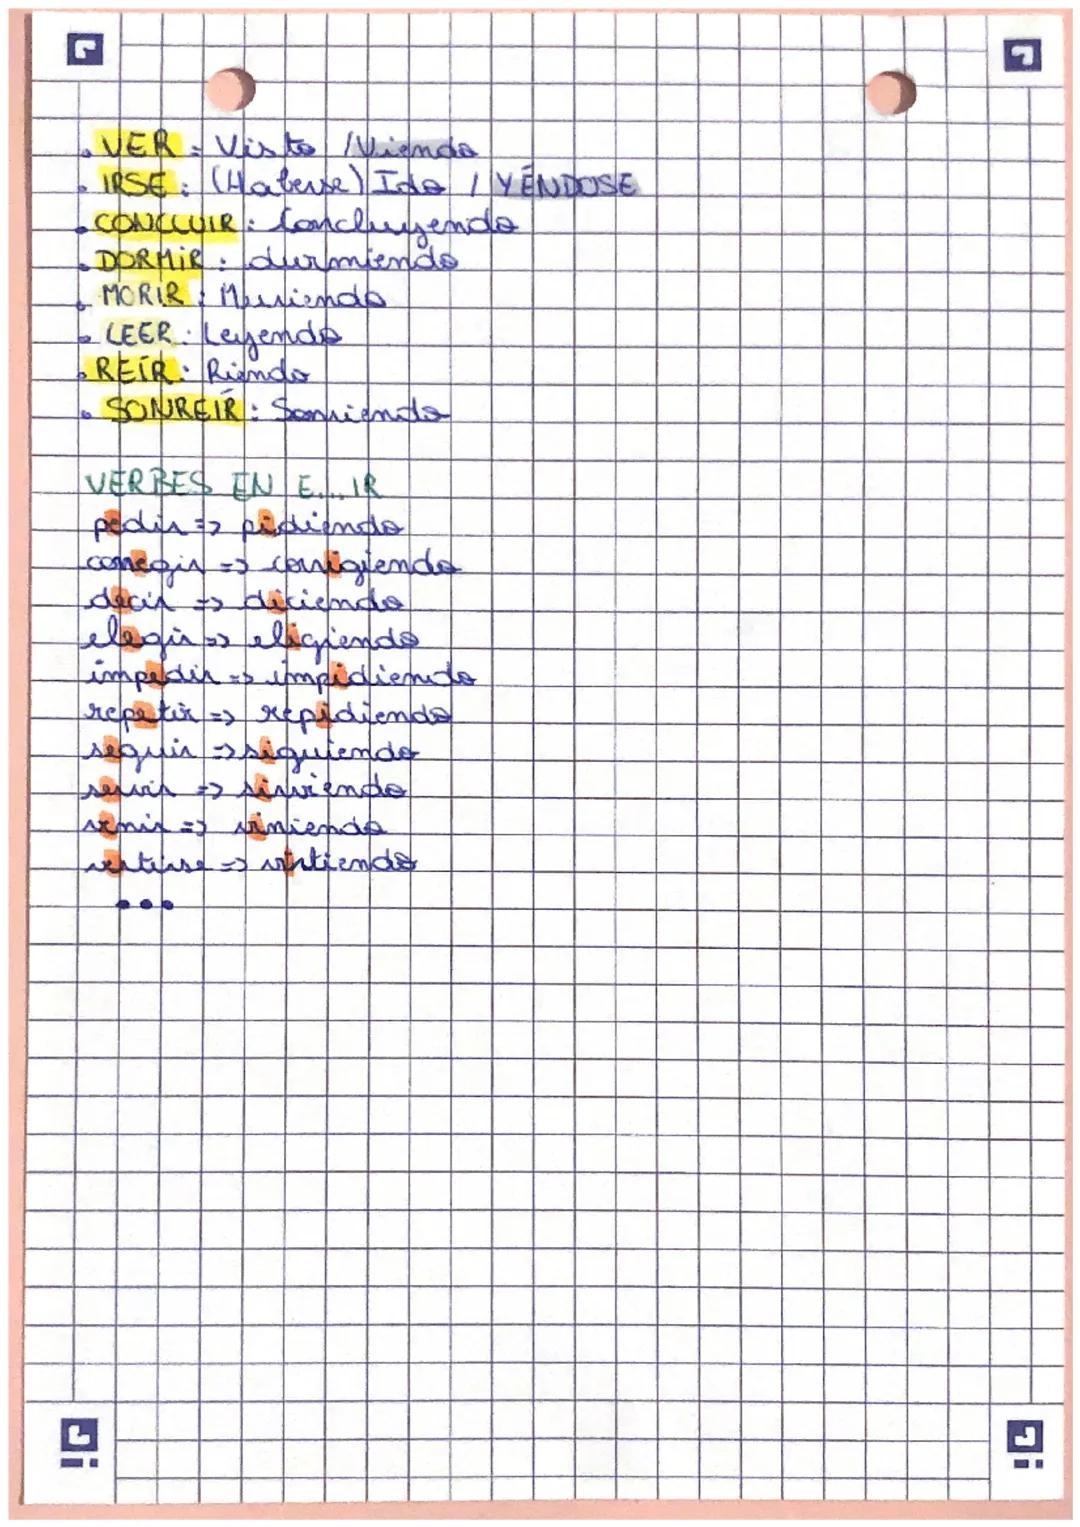 • VER : Visto / Viendo
• IRSE : (Haberse) Ido / YÉNDOSE
• CONCLUIR : Concluyendo
• DORMIR : durmiendo
• MORIR : Muriendo
• LEER : Leyendo
• REÍR : Riendo
• SONREÍR : Sonriendo
VERBES EN E....IR
pedir => pidiendo
corregir => corrigiendo
decir => diciendo
elegir => eligiendo
impedir => impidiendo
repetir => repidiendo
seguir => siguiendo
servir => sirviendo
venir => viniendo
vestirse => vistiendo
...